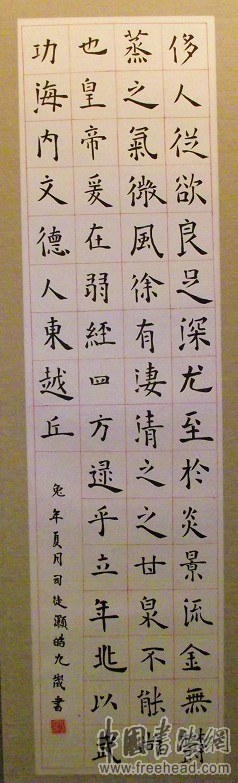 侈人從欲良足深尤至於炎景流金無鬱
蒸之氣微風徐有淒清之之甘泉不能
也皇帝爰在弱經四方逯乎立年北以武
功海內文德人東越丘
兔年夏月司徒灝皓九歲書
中国書法網
www.freehead.com